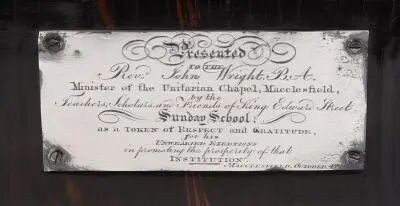 Presented
TO THE
Revd. John Wright, B.A.
Minister of the Unitarian Chapel, Macclesfield,
by the
Teachers, Scholars, and Friends of King Edward Street
Sunday School;
as a TOKEN of RESPECT and GRATITUDE,
for his
UNWEARIED EXERTIONS
in promoting the prosperity of that
INSTITUTION.
MACCLESFIELD, OCTOBER